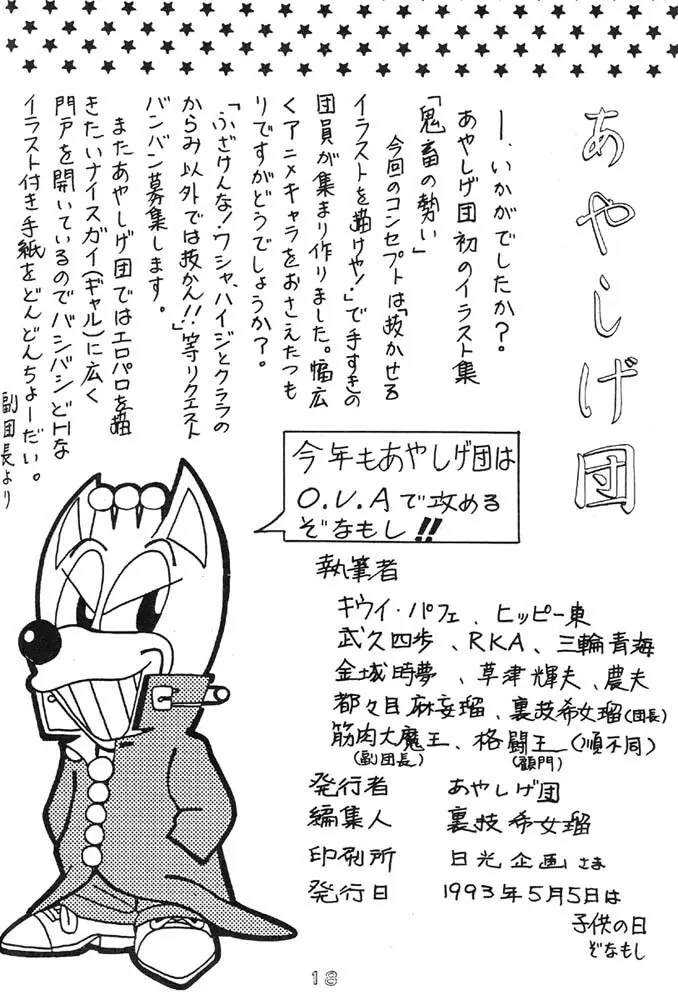 あやしげ団
―、いかがでしたか？
あやしげ団初のイラスト集
「鬼畜の勢い」
今回のコンセプトは「抜かせる
イラストを描けや！」で手すきの
団員が集まり作りました。幅広
くアニメキャラをおさえたつも
りですがどうでしょうか？。
「ふざけんな！ワシャ、ハイジとクララの
からみ以外では抜かん!!」等リクエスト
バンバン募集します。
またあやしげ団ではエロパロを描
きたいナイスガイ(ギャル)に広く
門戸を開いているのでバシバシどHな
イラスト付き手紙をどんどんちょーだい。
副団長より
今年もあやしげ団は
O.V.Aで攻める
ぞなもし!!
執筆者
キウイ・パフェ、ヒッピー東
武久四歩、RKA、三輪青海
金城時夢、草津輝夫、農夫
都々目麻妄瑠、裏技希女瑠(団長)
筋肉大魔王、格闘王(順不同)
(副団長) (顧問)
発行者 あやしげ団
編集人 裏技希女瑠
印刷所 日光企画さま
発行日 1993年5月5日は
子供の日
ぞなもし
18